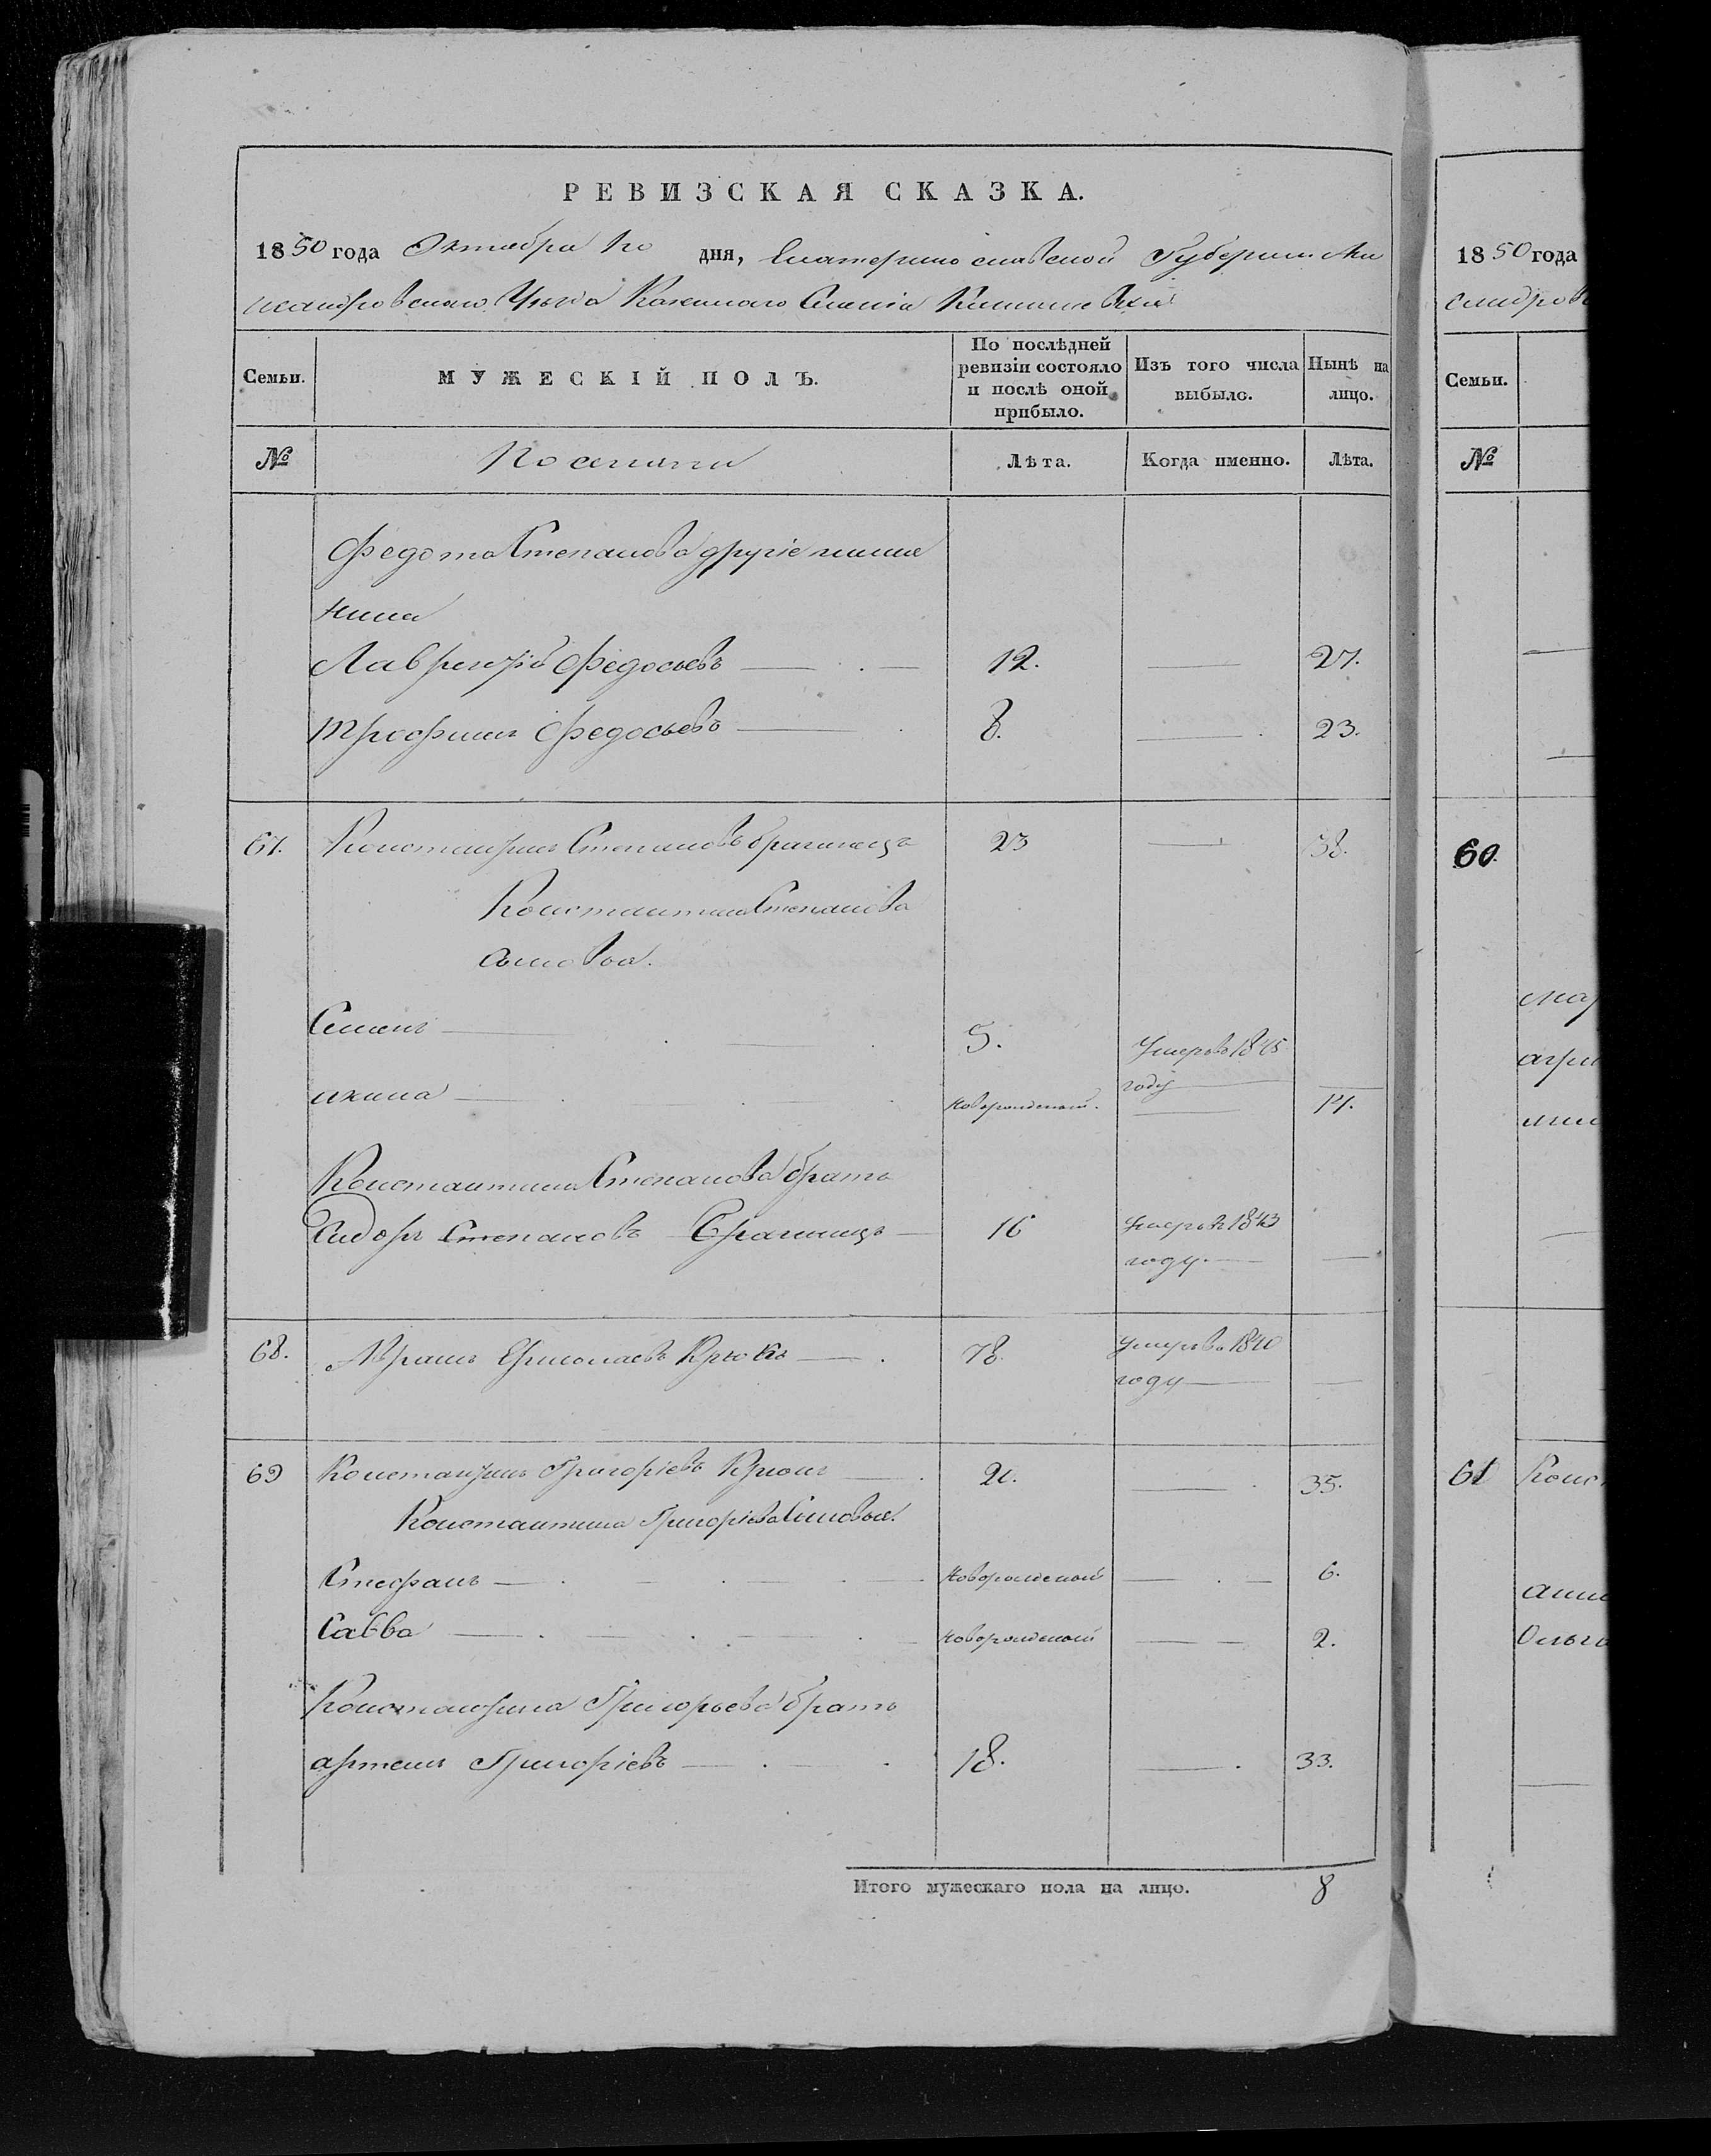 РЕВИЗСКАЯ СКАЗКА.
1850 года Октября дня, Екатеринославской Губернии Але
ксандровскаго Уѣзда Казеннаго Селенія
Семьи. МУЖЕСКІЙ ПОЛЪ. По послѣдней ревизіи состояло и послѣ оной прибыло. Изъ того числа выбыло. Нынѣ на лицо.
№ Поселяни Лѣта. Когда именно. Лѣта.
Федота Степанова другіе
Лаврентій Федосьевъ 12. 27.
Трофимъ Федосьевъ 8. 23.
67. Константинъ Степановъ 23 38.
Константина Степанова
сыновья.
Семенъ 5. Умеръ въ 1845
году
акима новорожденый. 14.
Константина Степанова братъ
Сидоръ Степановъ 16 Умеръ въ 1843
году.
68. Абрамъ Ермолаевъ Крюкъ 78. Умеръ въ 1840
году
69 Константинъ Григоріевъ Крюкъ 20. 35.
Константина Григоріева Сыновья.
Стефанъ новорожденый 6.
Савва новорожденый 2.
Константина Григорьева братъ
артемъ Григоріевъ 18. 33.
Итого мужескаго пола на лицо. 8
1850 года
Семьи.
№
60.
61